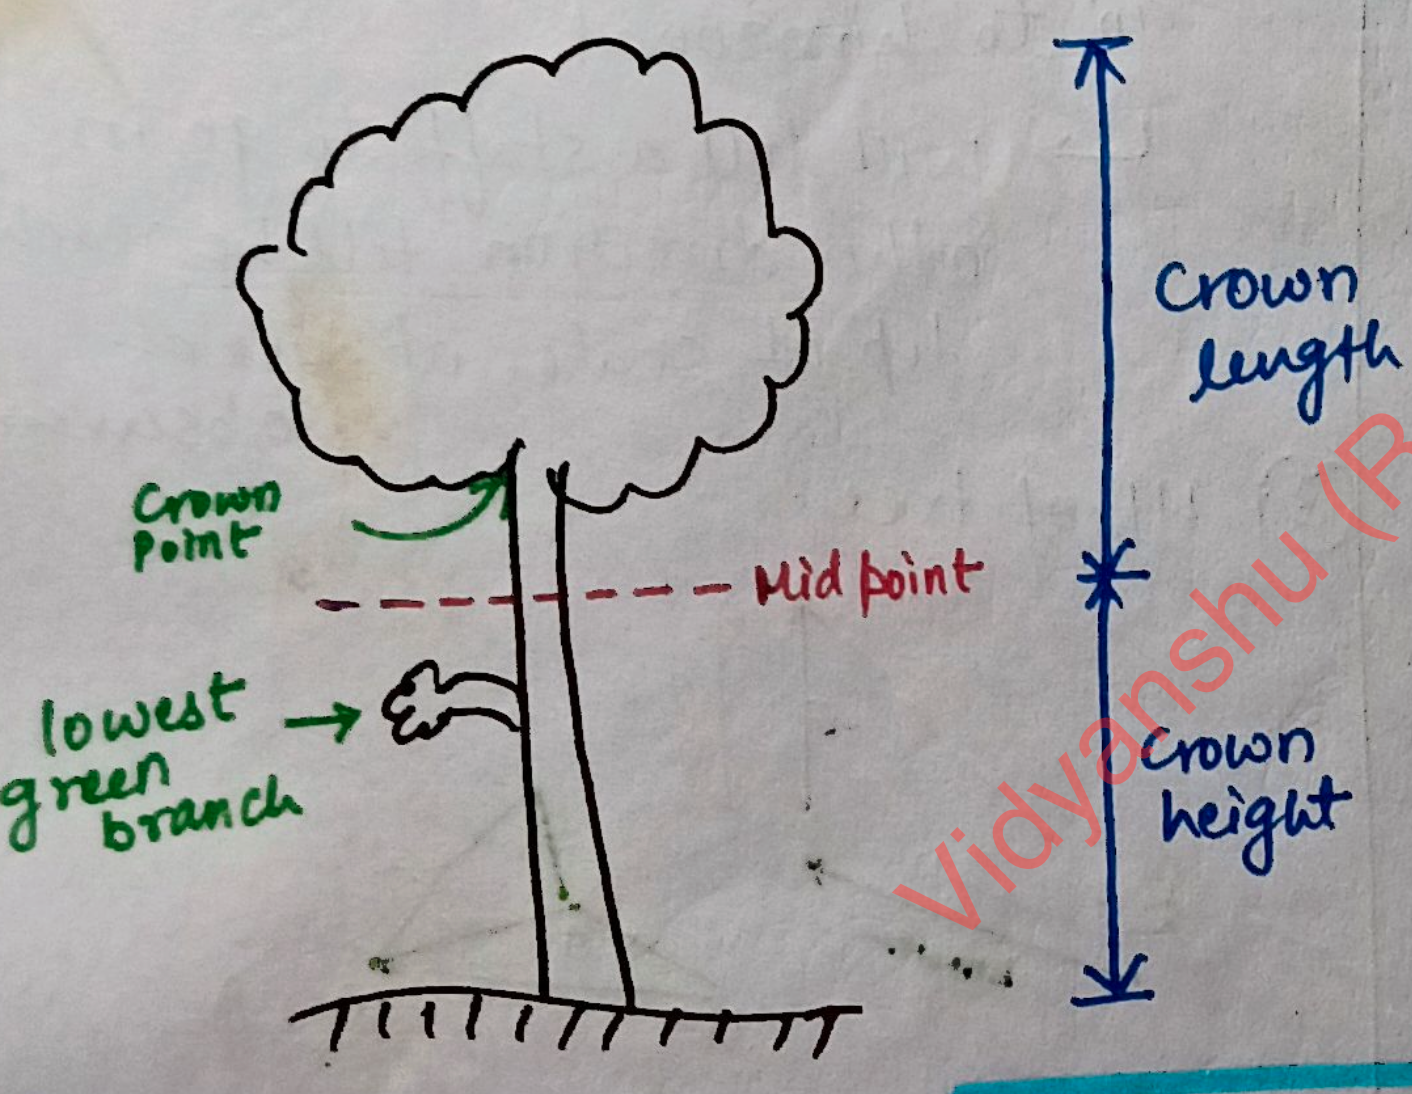 Crown
length
Crown
Point
Mid point
lowest
green
branch
Crown
height
Vidyanshu (R